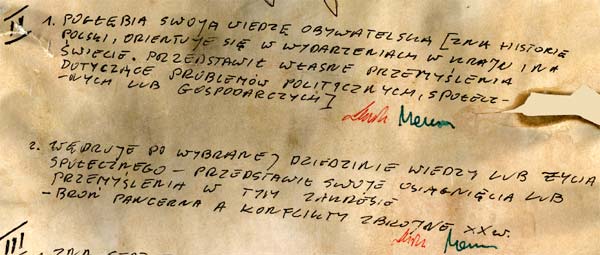 II 1. POGŁĘBIA SWOJĄ WIEDZĘ OBYWATELSKĄ [ZNA HISTORIĘ
POLSKI, ORIENTUJE SIĘ W WYDARZENIACH W KRAJU I NA
ŚWIECIE. PRZEDSTAWIŁ WŁASNE PRZEMYŚLENIA
DOTYCZĄCE PROBLEMÓW POLITYCZNYCH, SPOŁECZ-
-NYCH LUB GOSPODARCZYCH]
2. WĘDRUJE PO WYBRANEJ DZIEDZINIE WIEDZY LUB ŻYCIA
SPOŁECZNEGO - PRZEDSTAWIŁ SWOJE OSIĄGNIĘCIA LUB
PRZEMYŚLENIA W TYM ZAKRESIE
- BROŃ PANCERNA A KONFLIKTY ZBROJNE XX w.
III